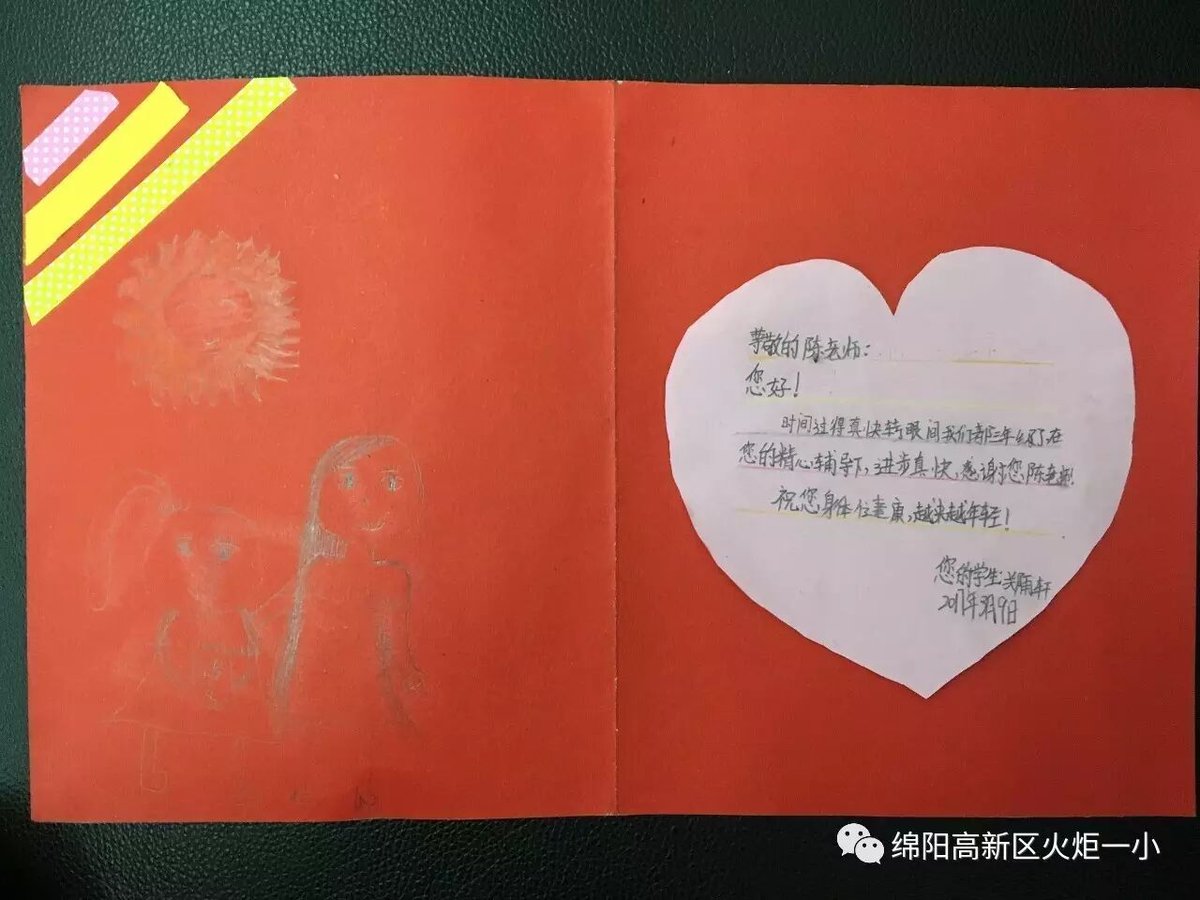 尊敬的陈老师：
您好！
时间过得真快转眼间我们都三年级了在
您的精心辅导下，进步真快，感谢您陈老师！
祝您身体健康，越来越年轻！
您的学生：关雨轩
2017年3月9日
绵阳高新区火炬一小